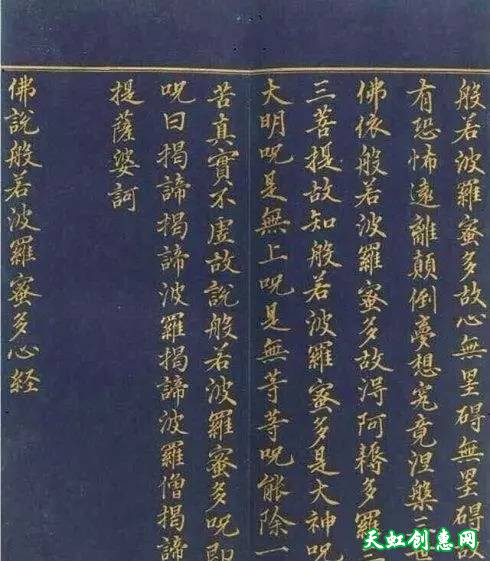 般若波羅蜜多故心無罣碍無罣碍故
有恐怖遠離顛倒夢想究竟涅槃三世
佛依般若波羅蜜多故得阿耨多羅三
三菩提故知般若波羅蜜多是大神呪
大明呪是無上呪是無等等呪能除一
苦真實不虛故說般若波羅蜜多呪即
呪曰揭諦揭諦波羅揭諦波羅僧揭諦
提薩婆訶
佛說般若波羅蜜多心経
天虹创惠网